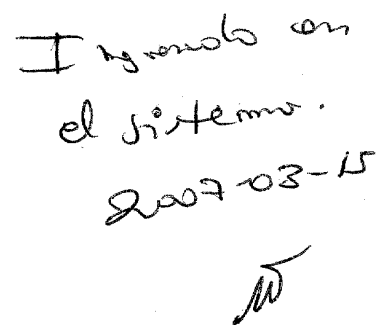 Ingresado en
el sistema.
2007-03-15